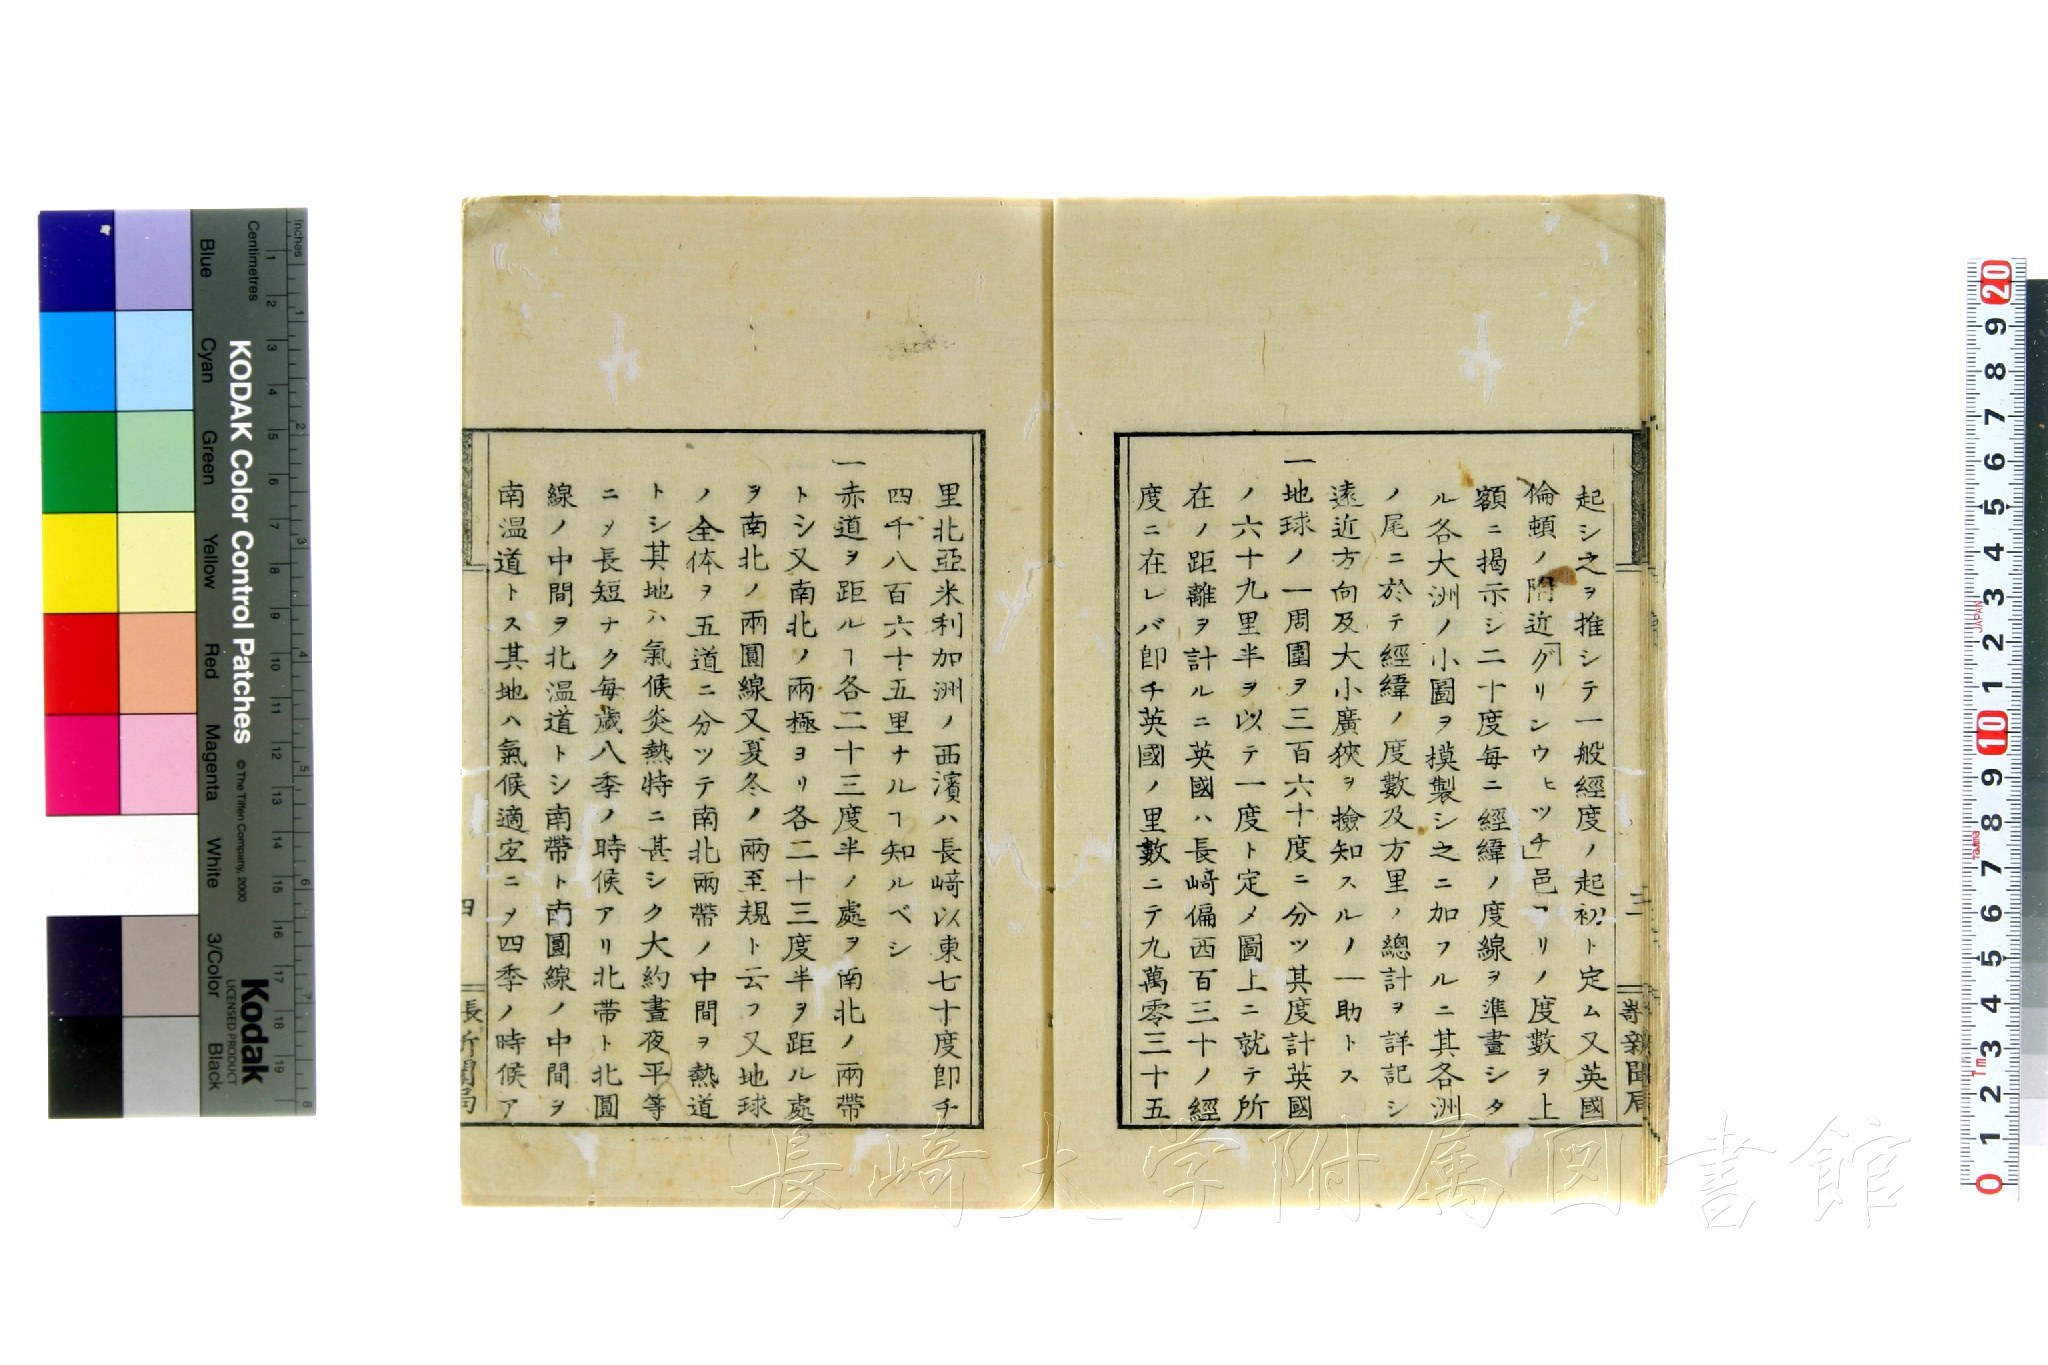 起シ之ヲ推シテ一般經度ノ起初ト定ム又英國
倫頓ノ附近「グリンウヒツチ」邑ヨリノ度數ヲ上
額ニ揭示シ二十度每ニ經緯ノ度線ヲ準畫シタ
ル各大洲ノ小圖ヲ摸製シ之ニ加フルニ其各洲
ノ尾ニ於テ經緯ノ度數及方里ノ總計ヲ詳記シ
遠近方向及大小廣狹ヲ撿知スルノ一助トス
一地球ノ一周圍ヲ三百六十度ニ分ツ其度計英國
ノ六十九里半ヲ以テ一度ト定メ圖上ニ就テ所
在ノ距離ヲ計ルニ英國ハ長﨑偏西百三十ノ經
度ニ在レバ卽チ英國ノ里數ニテ九萬零三十五
三
新聞局
里北亞米利加洲ノ西濱ハ長﨑以東七十度卽チ
四千八百六十五里ナルヿ知ルベシ
一赤道ヲ距ルヿ各二十三度半ノ處ヲ南北ノ兩帶
トシ又南北ノ兩極ヨリ各二十三度半ヲ距ル處
ヲ南北ノ兩圓線又夏冬ノ兩至規ト云フ又地球
ノ全体ヲ五道ニ分ツテ南北兩帶ノ中間ヲ熱道
トシ其地ハ氣候炎熱特ニ甚シク大約晝夜平等
ニメ長短ナク每歲八季ノ時候アリ北帶ト北圓
線ノ中間ヲ北温道トシ南帶ト南圓線ノ中間ヲ
南温道トス其地ハ氣候適宜ニメ四季ノ時候ア
四
長
長崎大学附属図書館
KODAK Color Control Patches
© The Tiffen Company, 2000
Kodak
LICENSED PRODUCT
Inches
Centimetres
Blue
Cyan
Green
Yellow
Red
Magenta
White
3/Color
Black
1 2 3 4 5 6 7 8 9 10 11 12 13 14 15 16 17 18 19
1 2 3 4 5 6 7 8
0 1 2 3 4 5 6 7 8 9 10 1 2 3 4 5 6 7 8 9 20
JAPAN